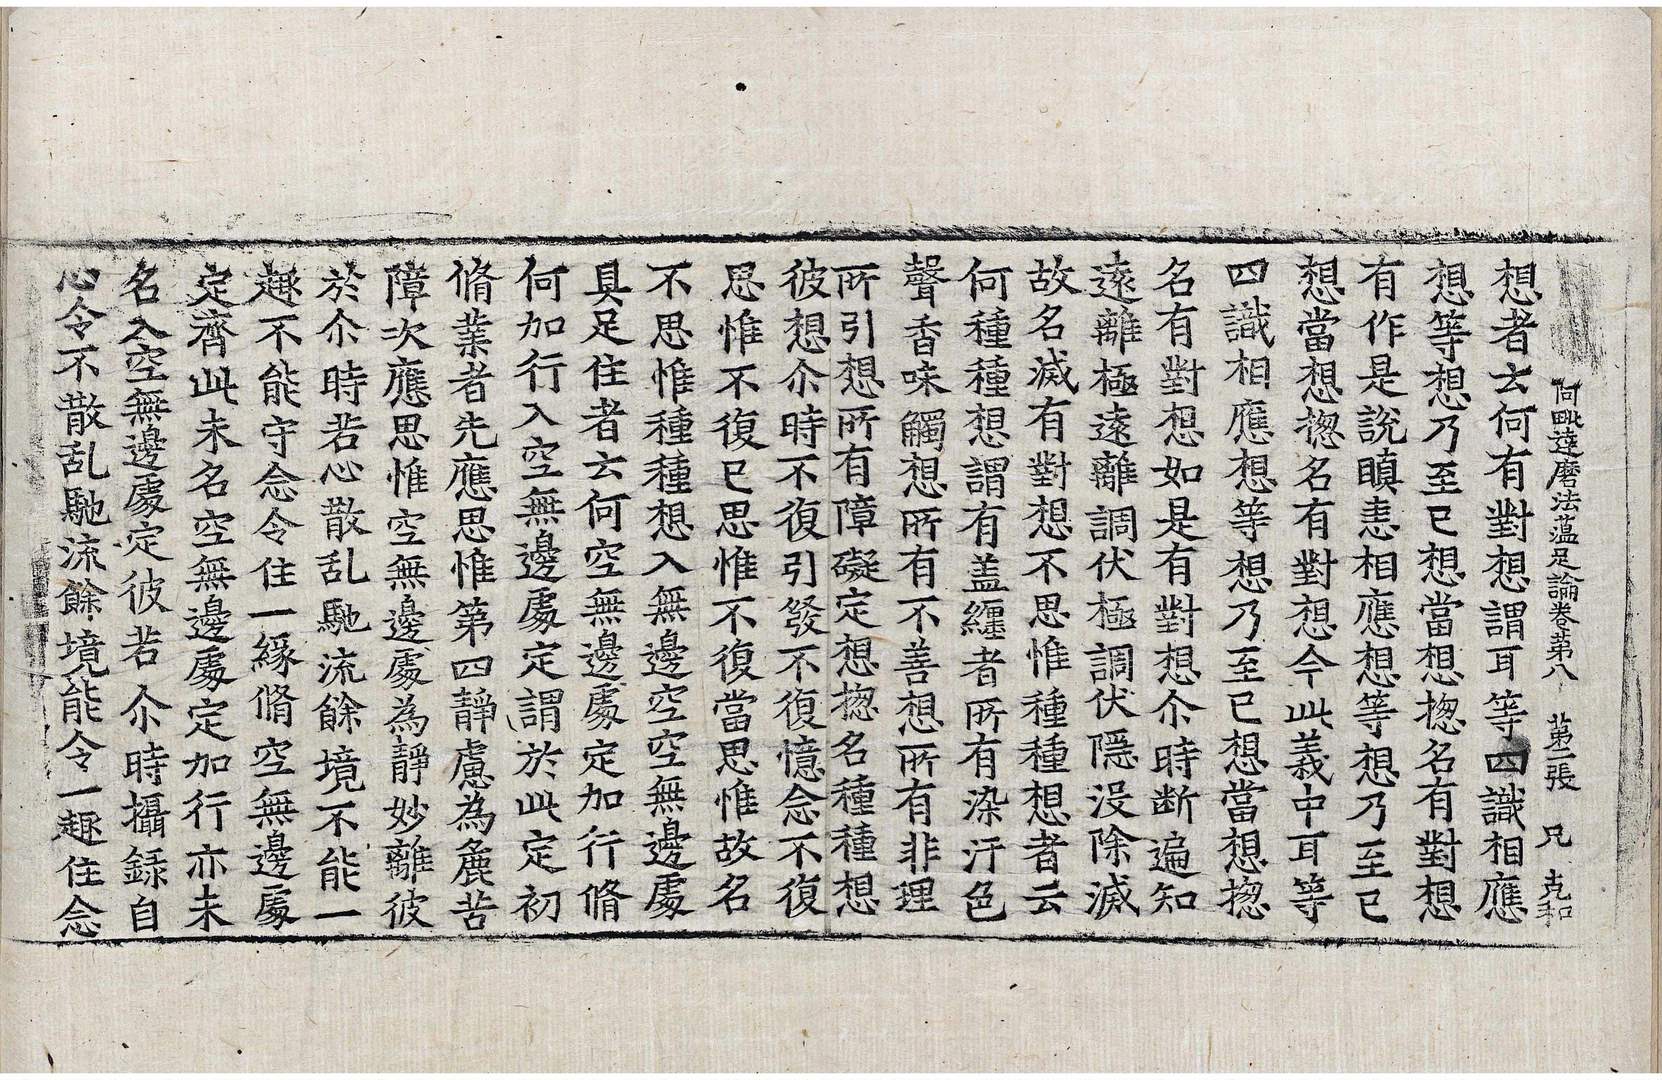 阿毗達磨法蘊足論卷第八 第二張 兄 克和
想者云何有對想謂耳等四識相應
想等想乃至已想當想揔名有對想
有作是說瞋恚相應想等想乃至已
想當想揔名有對想今此義中耳等
四識相應想等想乃至已想當想揔
名有對想如是有對想尒時断遍知
遠離極遠離調伏極調伏隱没除滅
故名滅有對想不思惟種種想者云
何種種想謂有盖纏者所有染汙色
聲香味觸想所有不善想所有非理
所引想所有障礙定想揔名種種想
彼想尒時不復引發不復憶念不復
思惟不復已思惟不復當思惟故名
不思惟種種想入無邊空空無邊處
具足住者云何空無邊處定加行脩
何加行入空無邊處定謂於此定初
脩業者先應思惟第四靜慮為麁苦
障次應思惟空無邊處為靜妙離彼
於尒時若心散乱馳流餘境不能一
趣不能守念令住一緣脩空無邊處
定齊此未名空無邊處定加行亦未
名入空無邊處定彼若尒時攝録自
心令不散乱馳流餘境能令一趣住念